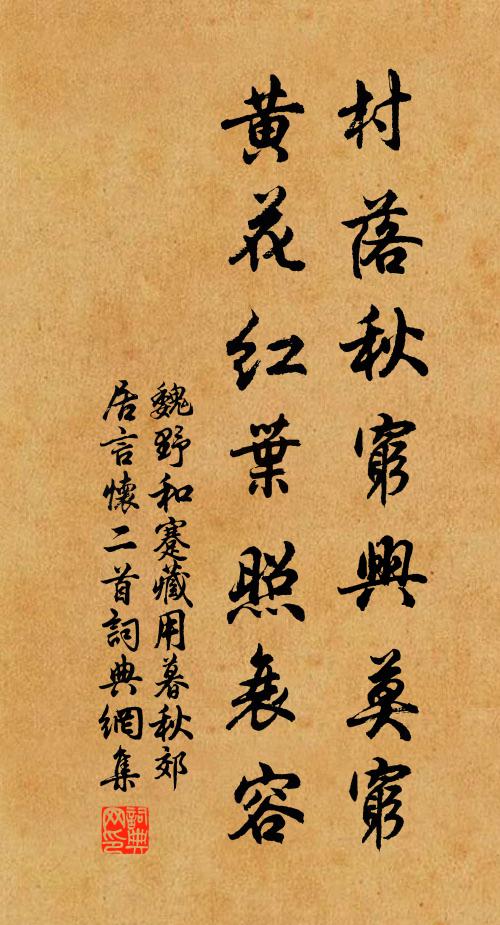 村落秋窮興莫窮
黃花紅葉照衰容
魏野和蹇藏用暮秋郊
居言懷二首詞典網集
詞典
网印